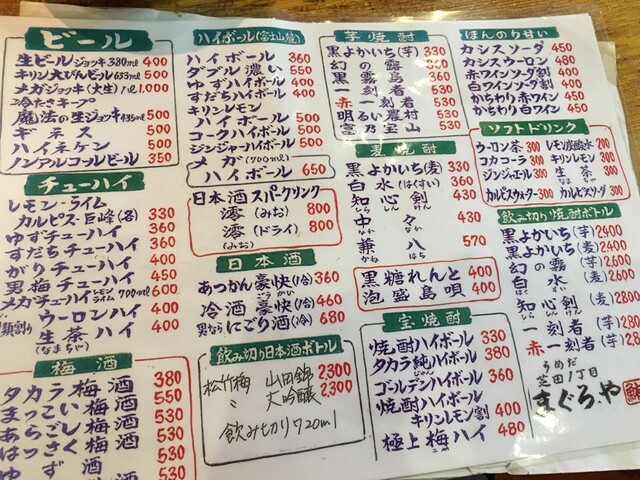 ビール
生ビールジョッキ380ml 400
キリン大びんビール633ml 500
メガジョッキ(大生)1L 1,000
冷たさキープ
魔法の生ジョッキ435ml 500
ギネス 500
ハイネケン 500
ノンアルコールビール 350
チューハイ
レモン・ライム
カルピス・巨峰(各) 330
ゆずチューハイ 360
すだちチューハイ 360
がりチューハイ 400
男梅チューハイ 450
メガチューハイ レモン ライム 700ml 600
ウーロンハイ 400
生茶ハイ 400
(なまちゃ)
梅酒
タカラ梅酒 380
まっこい梅酒 550
あらごし梅酒 530
はっさく梅酒 530
ゆず酒 530
ハイボール(富士山麓)
ハイボール 360
ダブル濃い 550
ゆずハイボール 400
すだちハイボール 400
キリンレモン
ハイボール 500
コークハイボール 500
ジンジャーハイボール 500
メガ(700ml)
ハイボール 650
日本酒スパークリング
澪(みお) 800
澪(ドライ) 800
(みお)
日本酒
あつかん豪快(1合) 360
ごうかい
冷酒豪快(1合) 460
男ならにごり酒(1合) 680
飲み切り日本酒ボトル
松竹梅 山田錦 2,300
〃 大吟醸 2,300
飲み切り720ml
芋焼酎
黒よかいち(芋) 330
幻の露 360
黒霧島 360
一刻者 430
赤一刻者 430
明るい農村 430
富乃宝山 430
麦焼酎
黒よかいち(麦) 330
白水(はくすい) 360
知心剣 430
しらしんけん
中々 430
なかなか
兼八 570
かねはち
黒糖れんと 400
泡盛島唄 400
宝焼酎
焼酎ハイボール 330
タカラ純ハイボール 380
じゅん
ゴールデンハイボール 360
焼酎ハイボール
キリンレモン割 400
極上梅ハイ 480
ほんのり甘い
カシスソーダ 450
カシスウーロン 480
赤ワインソーダ割 400
白ワインソーダ割 400
かちわり赤ワイン 450
かちわり白ワイン 450
ソフトドリンク
ウーロン茶 300
レモン炭酸水 200
コカコーラ 300
キリンレモン 300
ジンジャエール 300
生茶 300
なまちゃ
カルピスウォーター 300
カルピスソーダ 300
飲み切り焼酎ボトル
黒よかいち(芋) 2400
黒よかいち(麦) 2,400
幻の露(芋) 2,600
白水(麦) 2,600
知心剣(麦) 2800
しらしんけん
一刻者(芋)
赤一刻者(芋)
うめだ
芝田1丁目
まぐろや